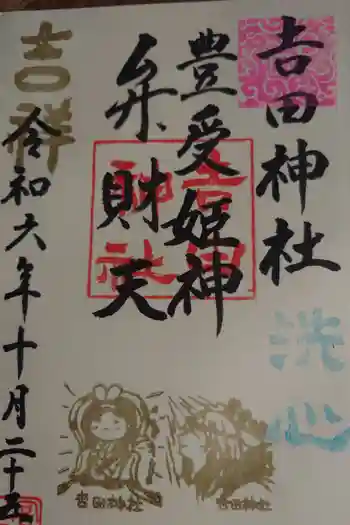 吉田神社
豊受姫神
弁財天
吉祥
令和六年十月二十五
洗心
吉田
神社
吉田神社
吉田神社